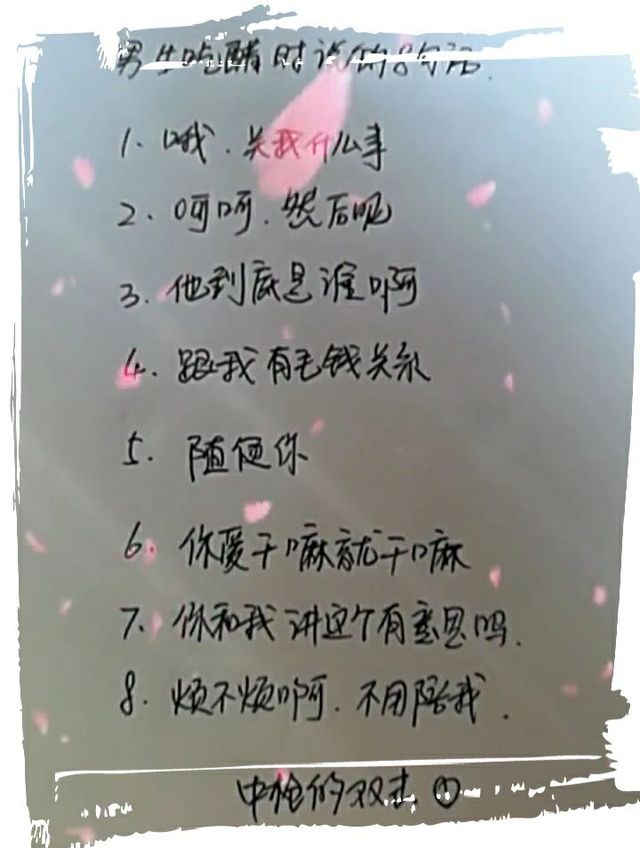 男生吃醋时说的8句话.
1. 哦.关我什么事
2. 呵呵.然后呢
3. 他到底是谁啊
4. 跟我有毛钱关系
5. 随便你
6. 你爱干嘛就干嘛
7. 你和我讲这个有意思吗.
8. 烦不烦啊.不用陪我.
中枪的双击①